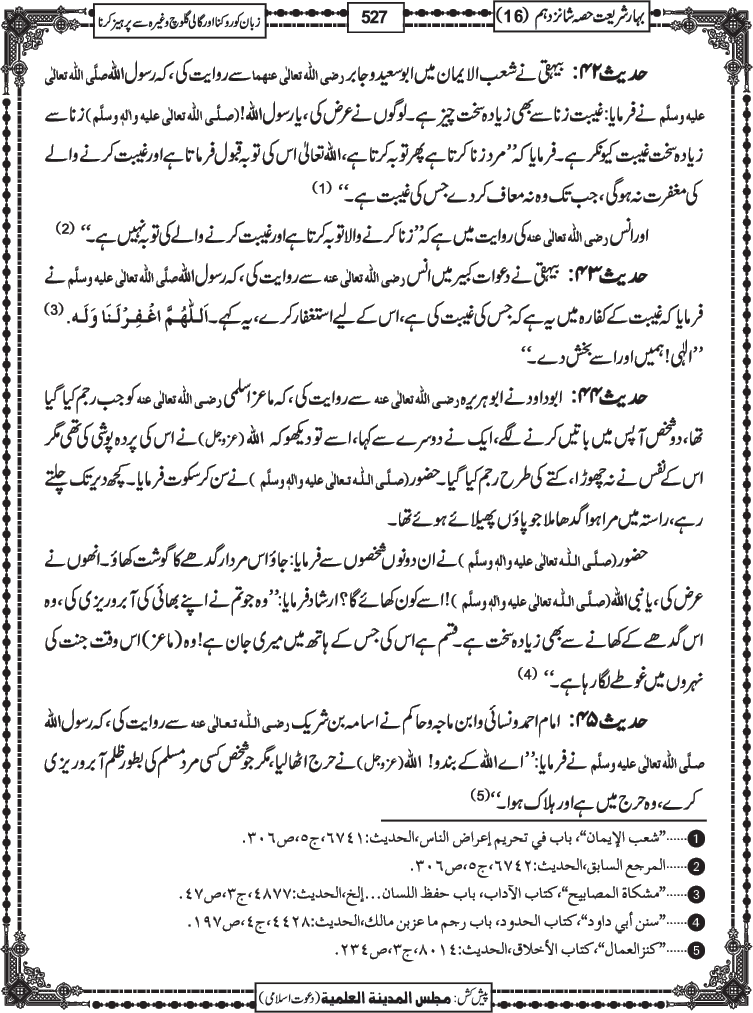 بہارِشریعت حصہ شانزدہم (16)
527
زبان کو روکنا اور گالی گلوچ وغیرہ سے پرہیز کرنا
حدیث ۴۲: بیہقی نے شعب الایمان میں ابو سعید و جابر رضی اللہ تعالٰی عنھما سے روایت کی، کہ رسول اللہ صلَّی اللہ تعالٰی
علیہ وسلَّم نے فرمایا: غیبت زنا سے بھی زیادہ سخت چیز ہے۔ لوگوں نے عرض کی، یارسول اللہ! (صلَّی اللہ تعالٰی علیہ واٰلہٖ وسلَّم) زنا سے
زیادہ سخت غیبت کیونکر ہے۔ فرمایا کہ ’’مرد زنا کرتا ہے پھر توبہ کرتا ہے، اللہ تعالیٰ اس کی توبہ قبول فرماتا ہے اور غیبت کرنے والے
کی مغفرت نہ ہوگی، جب تک وہ نہ معاف کردے جس کی غیبت ہے۔‘‘ (1)
اور انس رضی اللہ تعالٰی عنہ کی روایت میں ہے کہ ’’زنا کرنے والا توبہ کرتا ہے اور غیبت کرنے والے کی توبہ نہیں ہے۔‘‘ (2)
حدیث ۴۳: بیہقی نے دعوات کبیر میں انس رضی اللہ تعالٰی عنہ سے روایت کی، کہ رسول اللہ صلَّی اللہ تعالٰی علیہ وسلَّم نے
فرمایا کہ غیبت کے کفارہ میں یہ ہے کہ جس کی غیبت کی ہے، اس کے لیے استغفار کرے، یہ کہے۔ اَللّٰھُمَّ اغْفِرْلَنَا وَلَہ. (3)
’’الٰہی! ہمیں اور اسے بخش دے۔‘‘
حدیث ۴۴: ابوداود نے ابوہریرہ رضی اللہ تعالٰی عنہ سے روایت کی، کہ ماعز اسلمی رضی اللہ تعالٰی عنہ کو جب رجم کیا گیا
تھا، دو شخص آپس میں باتیں کرنے لگے، ایک نے دوسرے سے کہا، اسے تو دیکھو کہ اللہ (عزوجل) نے اس کی پردہ پوشی کی تھی مگر
اس کے نفس نے نہ چھوڑا، کتے کی طرح رجم کیا گیا۔ حضور (صلَّی اللہ تعالٰی علیہ واٰلہٖ وسلَّم) نے سن کر سکوت فرمایا۔ کچھ دیر تک چلتے
رہے، راستہ میں مرا ہوا گدھا ملا جو پاؤں پھیلائے ہوئے تھا۔
حضور (صلَّی اللہ تعالٰی علیہ واٰلہٖ وسلَّم) نے ان دونوں شخصوں سے فرمایا: جاؤ اس مردار گدھے کا گوشت کھاؤ۔ انھوں نے
عرض کی، یا نبی اللہ (صلَّی اللہ تعالٰی علیہ واٰلہٖ وسلَّم)! اسے کون کھائے گا؟ ارشاد فرمایا: ’’وہ جو تم نے اپنے بھائی کی آبروریزی کی، وہ
اس گدھے کے کھانے سے بھی زیادہ سخت ہے۔ قسم ہے اس کی جس کے ہاتھ میں میری جان ہے! وہ (ماعز) اس وقت جنت کی
نہروں میں غوطے لگا رہا ہے۔‘‘ (4)
حدیث ۴۵: امام احمد و نسائی و ابن ماجہ و حاکم نے اسامہ بن شریک رضی اللہ تعالٰی عنہ سے روایت کی، کہ رسول اللہ
صلَّی اللہ تعالٰی علیہ وسلَّم نے فرمایا: ’’اے اللہ کے بندو! اللہ (عزوجل) نے حرج اٹھالیا، مگر جو شخص کسی مرد مسلم کی بطور ظلم آبروریزی
کرے، وہ حرج میں ہے اور ہلاک ہوا۔‘‘ (5)
1 ......’’شعب الإيمان‘‘، باب في تحريم إعراض الناس، الحديث: ٦٧٤١، ج٥، ص٣٠٦.
2 ......المرجع السابق، الحديث: ٦٧٤٢، ج٥، ص٣٠٦.
3 ......’’مشكاة المصابيح‘‘، كتاب الآداب، باب حفظ اللسان...إلخ، الحديث: ٤٨٧٧، ج٣، ص٤٧.
4 ......’’سنن أبي داود‘‘، كتاب الحدود، باب رجم ما عزبن مالك، الحديث: ٤٤٢٨، ج٤، ص١٩٧.
5 ......’’كنز العمال‘‘، كتاب الأخلاق، الحديث: ٨٠١٤، ج٣، ص٢٣٤.
پیش کش: مجلس المدینۃ العلمیۃ (دعوت اسلامی)